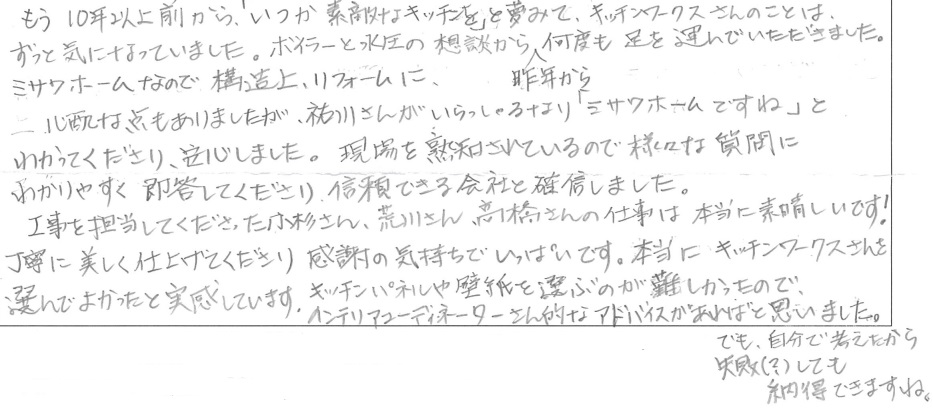 もう10年以上前から、「いつか素敵なキッチンを」と夢みて、キッチンワークスさんのことは、
ずっと気になっていました。ボイラーと水圧の相談から、何度も足を運んでいただきました。
昨年から
ミサワホームなので構造上、リフォームに、
心配な点もありましたが、祐川さんがいらっしゃるなり「ミサワホームですね」と
わかってくださり、安心しました。現場を熟知されているので様々な質問に
わかりやすく即答してくださり、信頼できる会社と確信しました。
工事を担当してくださった小杉さん、荒川さん、高橋さんの仕事は本当に素晴しいです!
丁寧に美しく仕上げてくださり感謝の気持ちでいっぱいです。本当にキッチンワークスさんを
選んでよかったと実感しています。キッチンパネルや壁紙を選ぶのが難しかったので、
インテリアコーディネーターさん的なアドバイスがあればと思いました。
でも、自分で考えたから
失敗(?)しても
納得できますね。